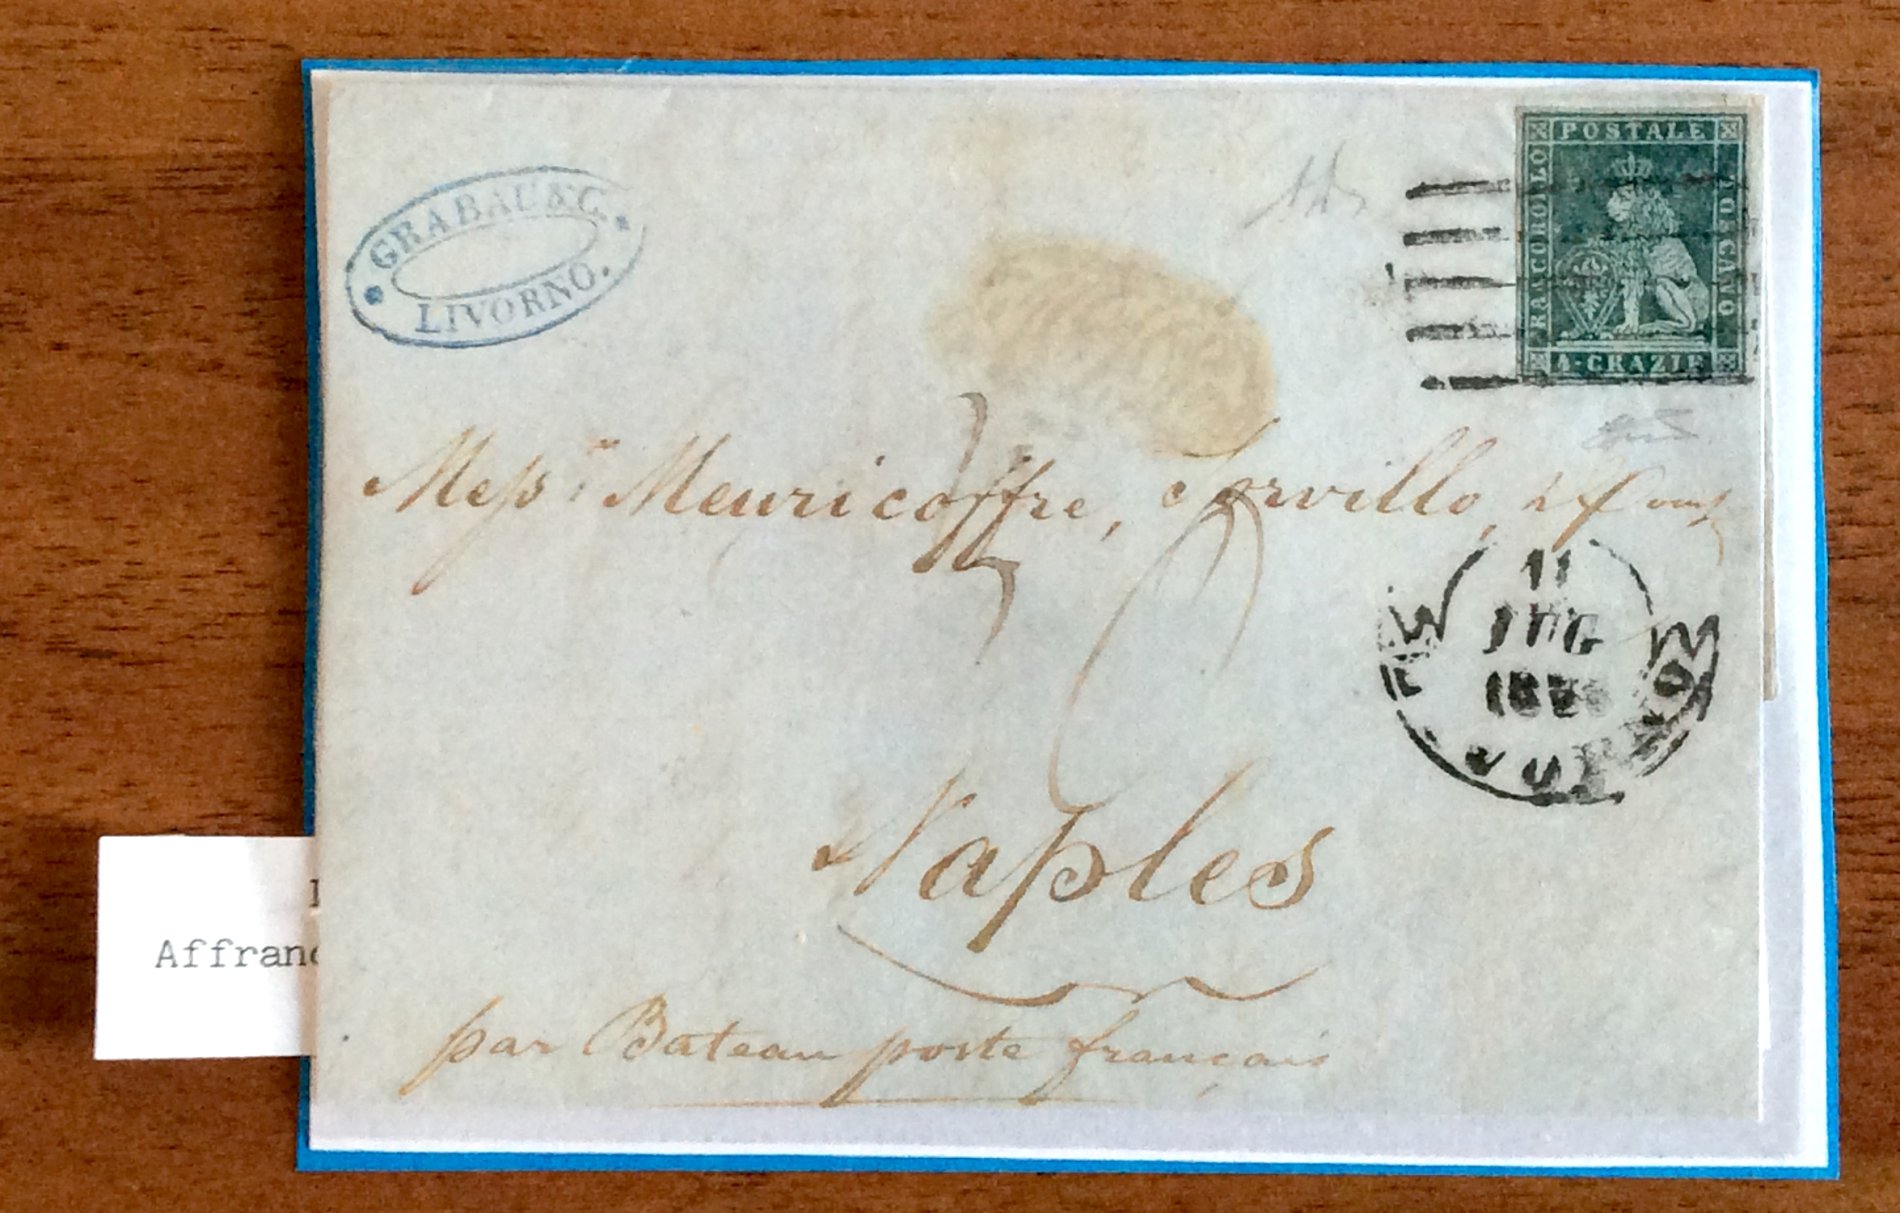 GRABAU & C.
LIVORNO.
POSTALE
FRANCOBOLLO
10 & C AVO
4-CRAZIE
Mess.rs Meuricoffre, Sorvillo, & Comp
11
LUG
LIVORNO
Naples
par Bateau poste français
Affranc